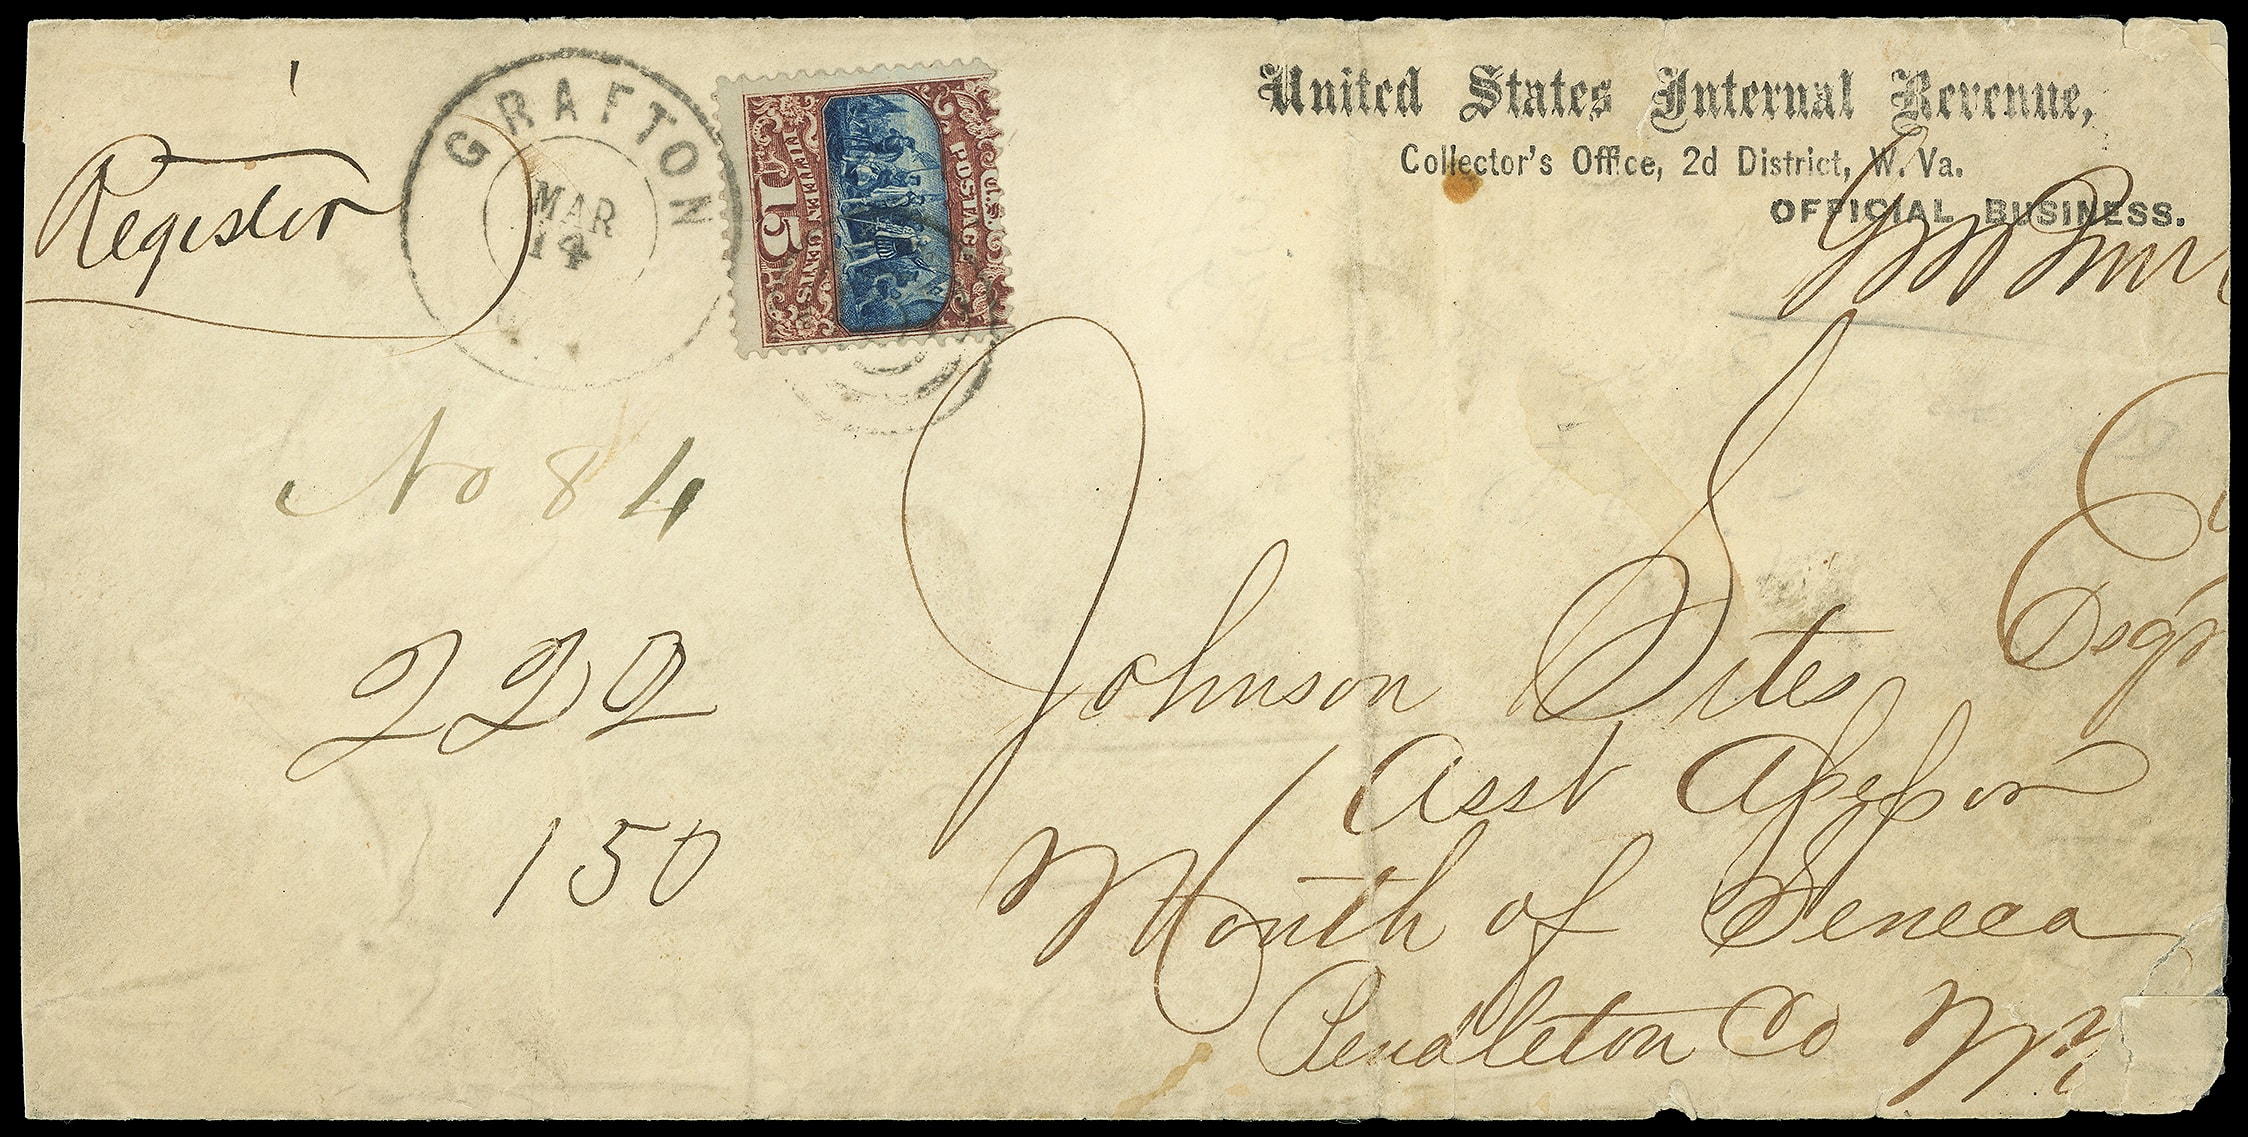 United States Internal Revenue,
Collector's Office, 2d District, W. Va.
OFFICIAL BUSINESS.
Register
GRAFTON
MAR
14
U.S.
POSTAGE
15
FIFTEEN CENTS
No 84
222
150
Johnson Sites
Esqr
Asst Assessor
Mouth of Seneca
Pendleton Co